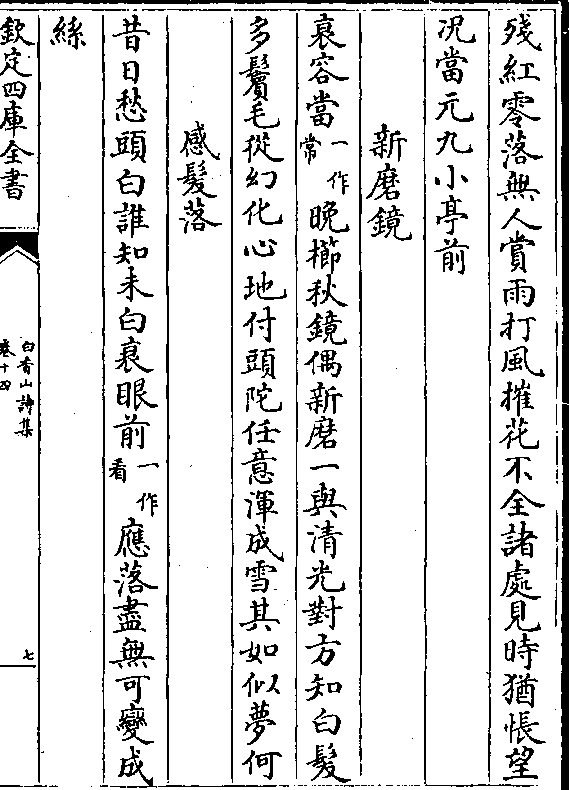 殘紅零落無人賞雨打風摧花不全諸處見時猶悵望
况當元九小亭前
新磨鏡
衰容當一作常晩櫛秋鏡偶新磨一與清光對方知白髮
多鬢毛從幻化心地付頭陀任意渾成雪其如似夢何
感髮落
昔日愁頭白誰知未白衰眼前一作看應落盡無可變成
絲
欽定四庫全書
白香山詩集
卷十四
七